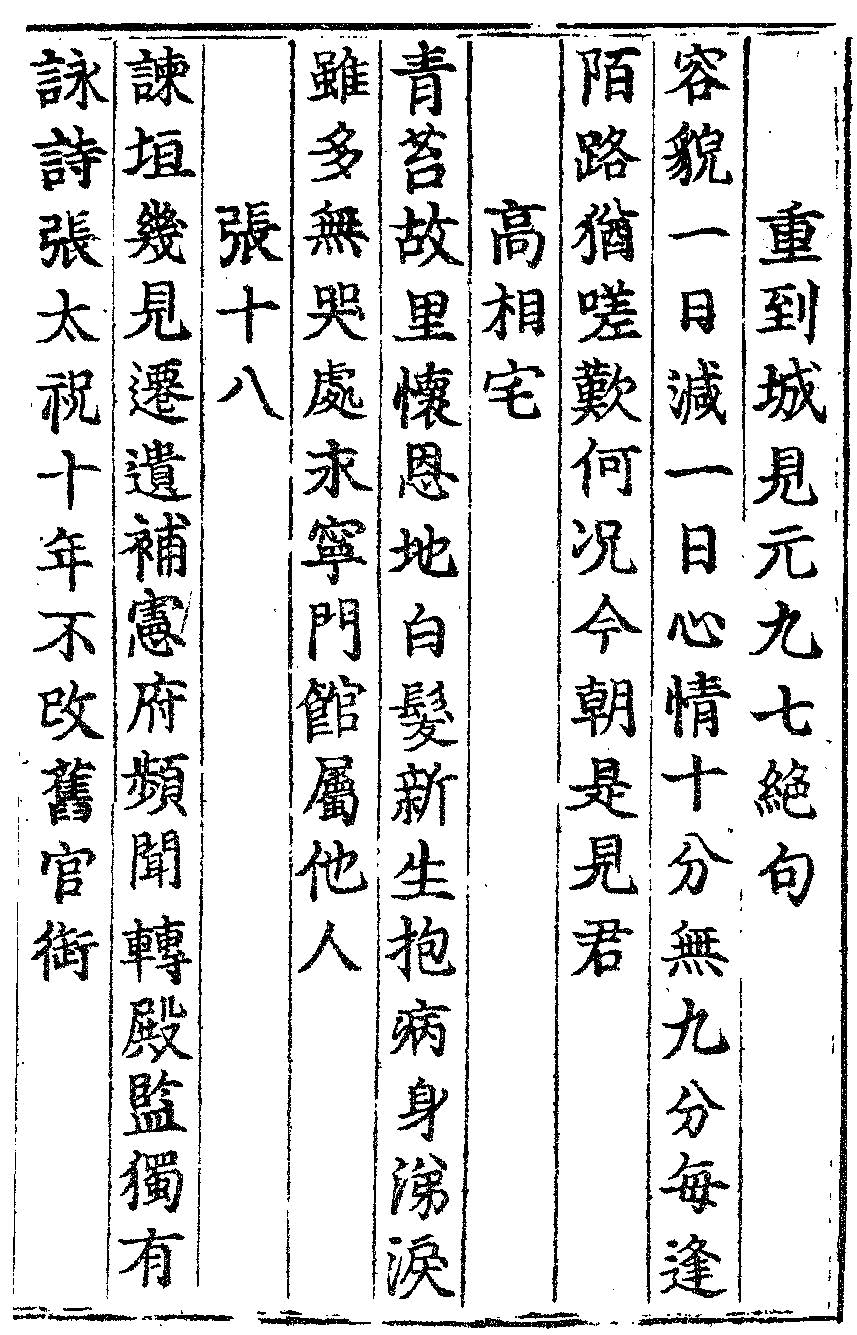 重到城見元九七絕句
容貌一日減一日心情十分無九分每逢
陌路猶嗟歎何况今朝是見君
高相宅
青苔故里懷恩地白髮新生抱病身涕淚
雖多無哭處永寧門館屬他人
張十八
諫垣幾見遷遺補憲府頻聞轉殿監獨有
詠詩張太祝十年不改舊官銜